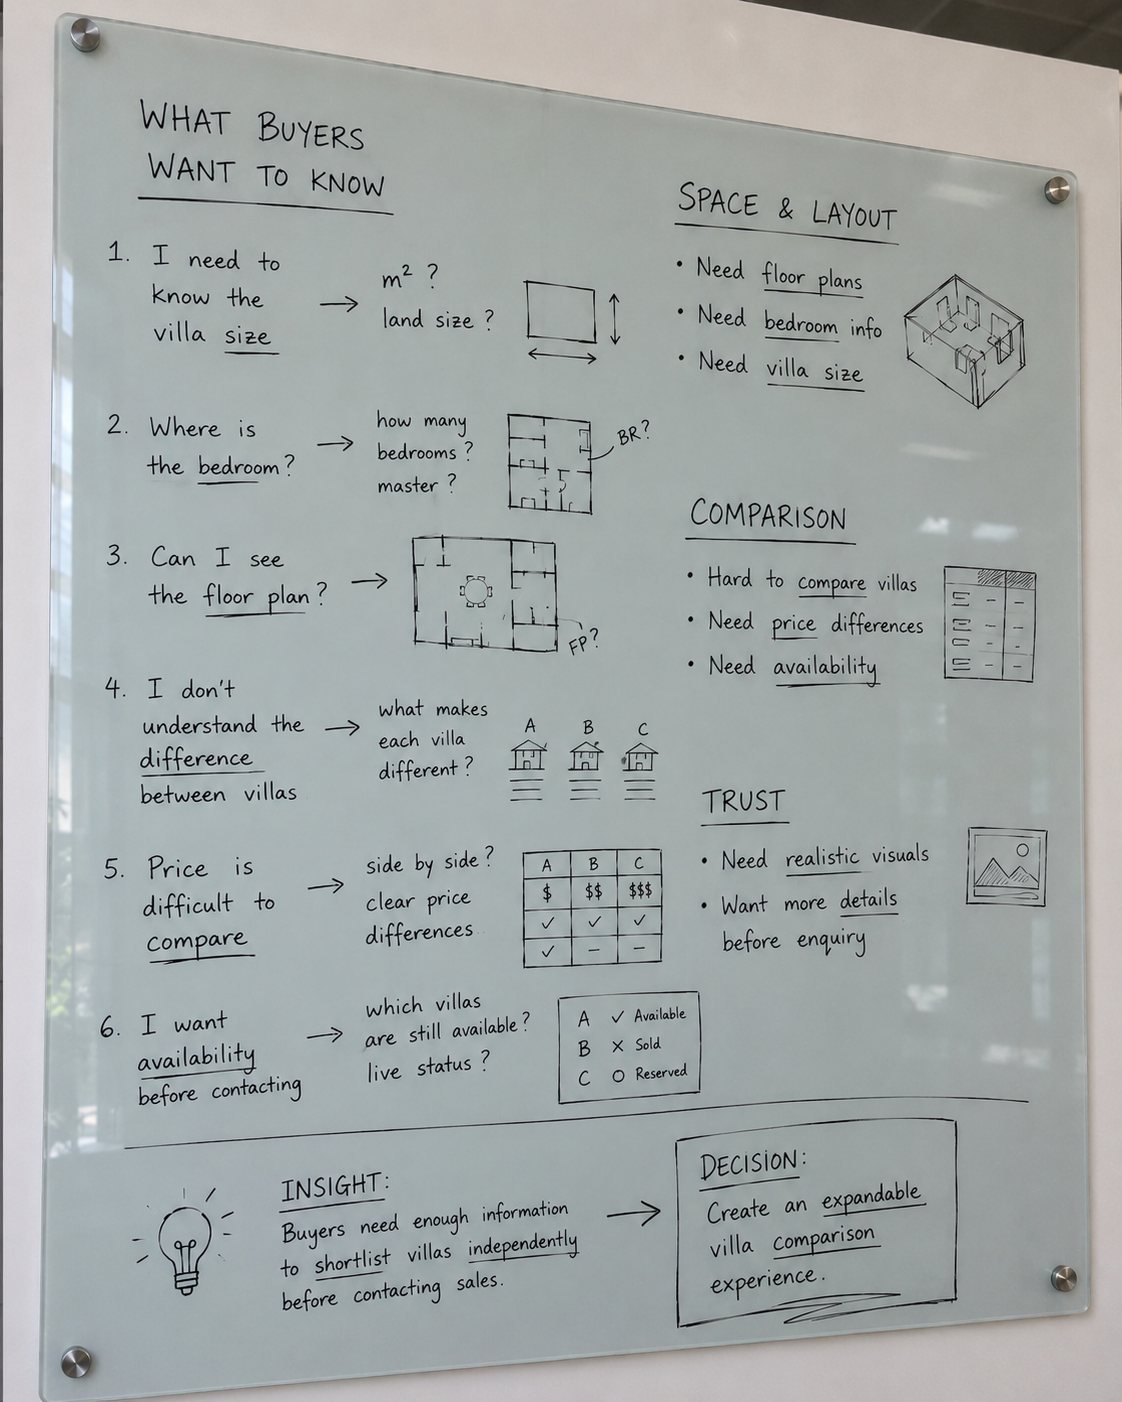 WHAT BUYERS
WANT TO KNOW
1. I need to
know the
villa size
m² ?
land size ?
2. Where is
the bedroom?
how many
bedrooms ?
master ?
BR?
3. Can I see
the floor plan?
FP?
4. I don't
understand the
difference
between villas
what makes
each villa
different ?
A B C
5. Price is
difficult to
compare
side by side?
clear price
differences
A B C
$ $$ $$$
✓ ✓ ✓
✓ – –
6. I want
availability
before contacting
which villas
are still available?
live status ?
A ✓ Available
B X Sold
C O Reserved
SPACE & LAYOUT
• Need floor plans
• Need bedroom info
• Need villa size
COMPARISON
• Hard to compare villas
• Need price differences
• Need availability
TRUST
• Need realistic visuals
• Want more details
before enquiry
INSIGHT:
Buyers need enough information
to shortlist villas independently
before contacting sales.
DECISION:
Create an expandable
villa comparison
experience.